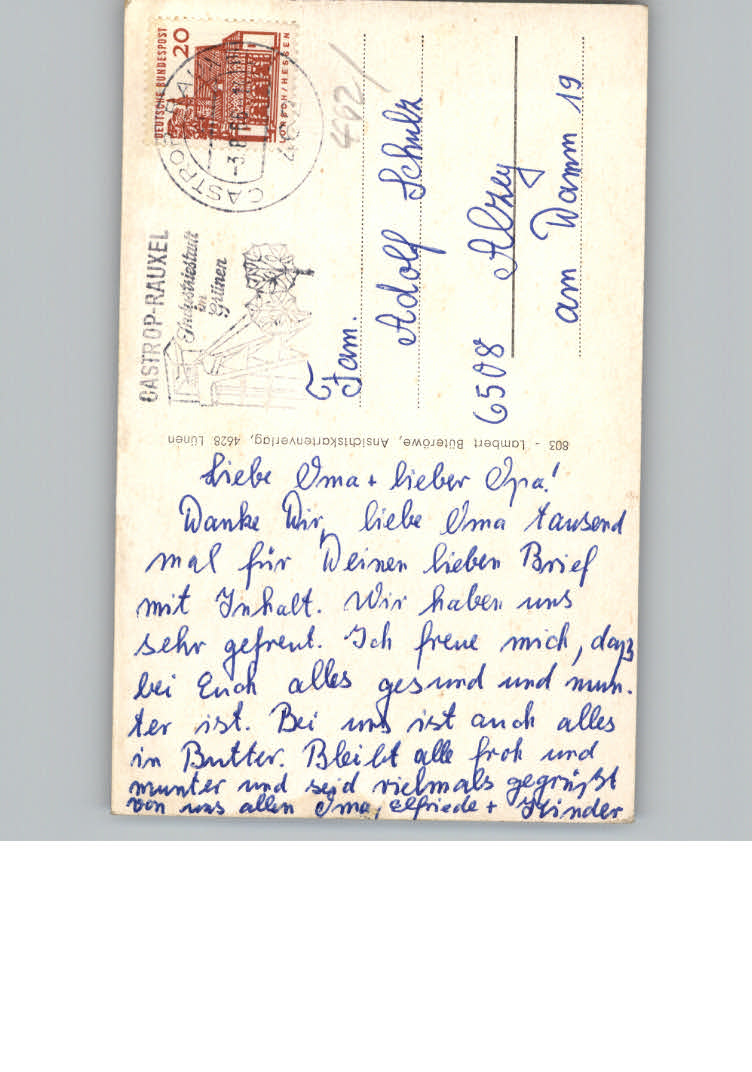 Liebe Oma + lieber Opa!
Danke Dir, liebe Oma tausend
mal für Deinen lieben Brief
mit Inhalt. Wir haben uns
sehr gefreut. Ich freue mich, daß
bei Euch alles gesund und mun-
ter ist. Bei uns ist auch alles
in Butter. Bleibt alle froh und
munter und seid vielmals gegrüßt
von uns allen Oma, Elfriede + Kinder
803 - Lambert Büteröwe, Ansichtskartenverlag, 4628 Lünen
Fam.
Adolf Schulz
6508 Alzey
am Damm 19
CASTROP-RAUXEL
Industriestadt
im
Grünen
DEUTSCHE BUNDESPOST
20
LORSCH/HESSEN
4621